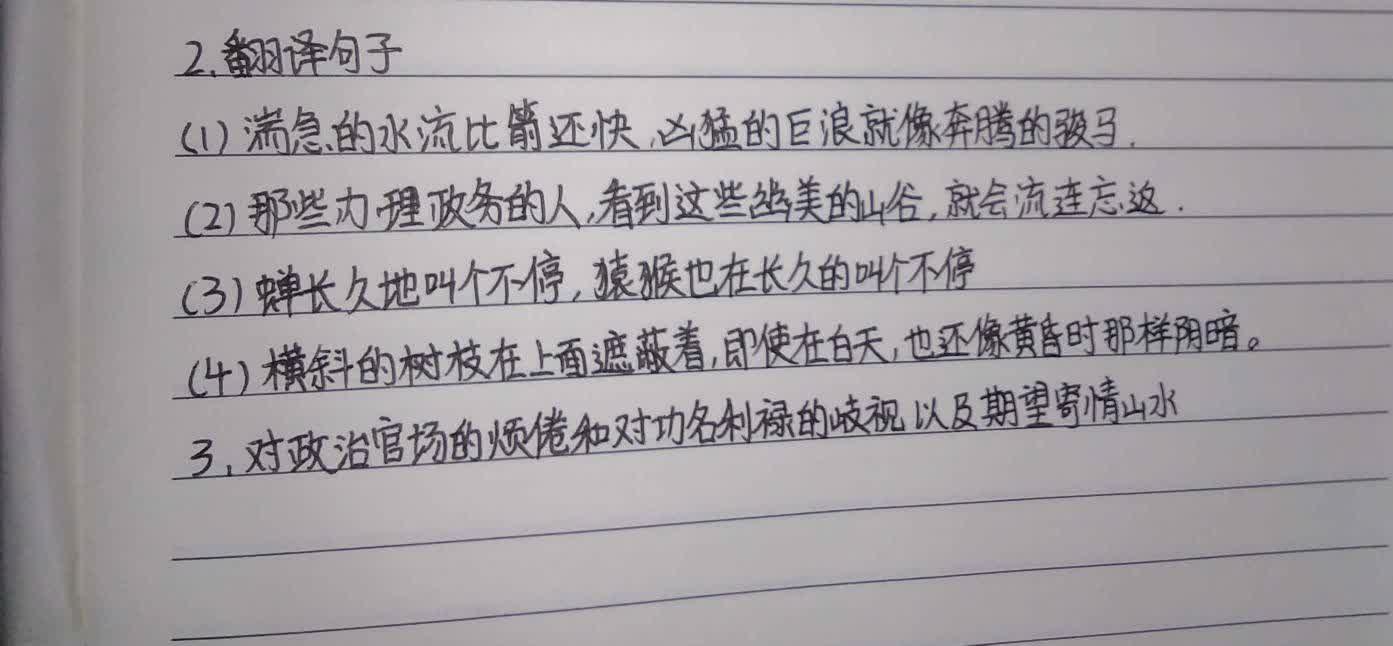 2.翻译句子
(1)湍急的水流比箭还快,凶猛的巨浪就像奔腾的骏马.
(2)那些办理政务的人,看到这些幽美的山谷,就会流连忘返.
(3)蝉长久地叫个不停,猿猴也在长久的叫个不停
(4)横斜的树枝在上面遮蔽着,即使在白天,也还像黄昏时那样阴暗。
3.对政治官场的烦倦和对功名利禄的歧视以及期望寄情山水